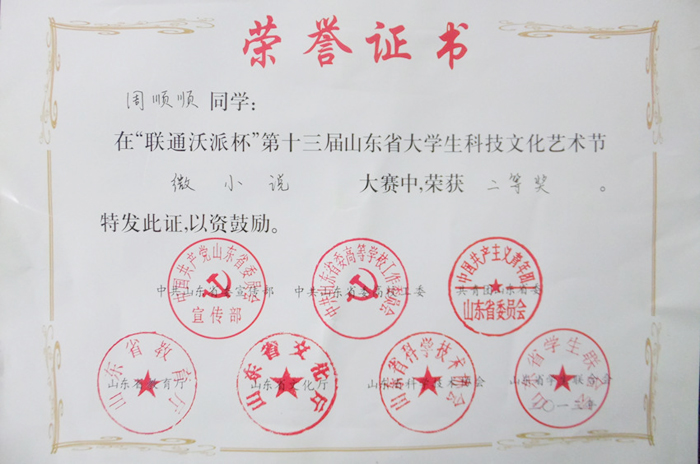 荣誉证书
周顺顺 同学:
在“联通沃派杯”第十三届山东省大学生科技文化艺术节
微小说 大赛中,荣获 二等奖 。
特发此证,以资鼓励。
中国共产党山东省委员会 宣传部
中共山东省委高等学校工作委员会
中国共产主义青年团 山东省委员会
中共山东省委宣传部 中共山东省委高校工委 共青团山东省委
山东省教育厅
山东省文化厅
山东省科学技术协会
山东省学生联合会
山东省教育厅 山东省文化厅 山东省科学技术协会 山东省学生联合会